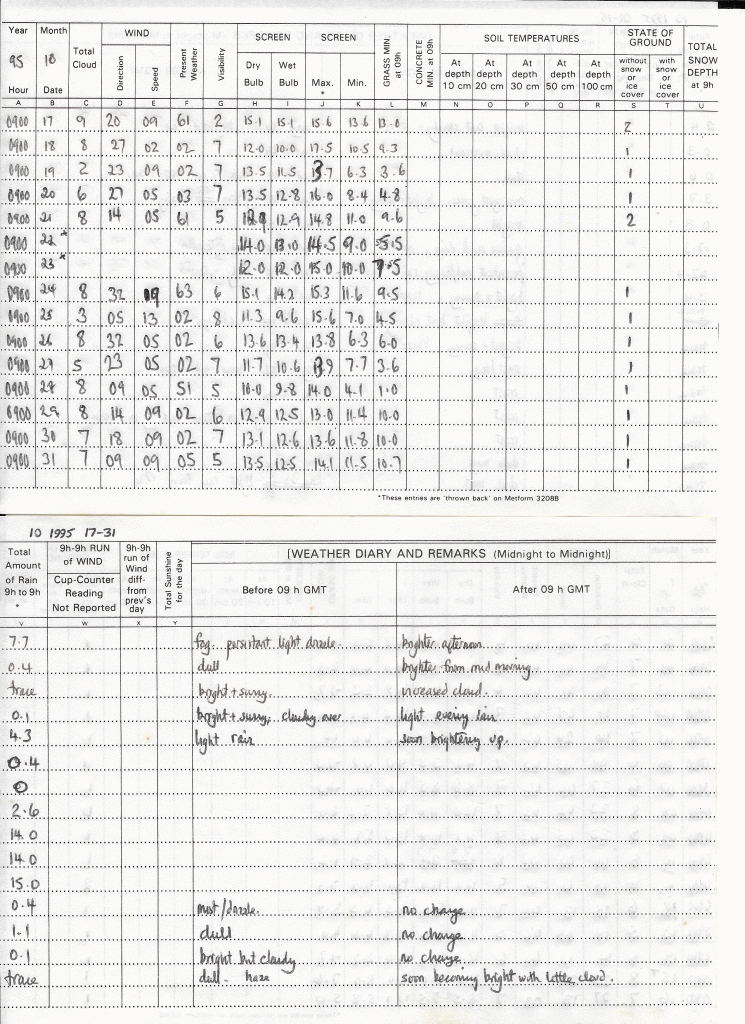 Year Month Total Cloud WIND Present Weather Visibility SCREEN SCREEN GRASS MIN. at 09h CONCRETE MIN. at 09h SOIL TEMPERATURES STATE OF GROUND TOTAL SNOW DEPTH at 9h
95 10 Direction Speed Dry Bulb Wet Bulb Max. * Min. At depth 10 cm At depth 20 cm At depth 30 cm At depth 50 cm At depth 100 cm without snow or ice cover with snow or ice cover
Hour Date
A B C D E F G H I J K L M N O P Q R S T U
0900 17 9 20 09 61 2 15.1 15.1 15.6 13.6 13.0 2
0900 18 8 27 02 02 7 12.0 10.0 17.5 10.5 9.3 1
0900 19 2 23 09 02 7 13.5 11.5 13.7 6.3 3.6 1
0900 20 6 27 05 03 7 13.5 12.8 16.0 8.4 4.8 1
0900 21 8 14 05 61 5 12.9 14.8 11.0 9.6 2
0900 22* 14.0 13.0 14.5 9.0 5.5
0900 23* 12.0 12.0 15.0 10.0 7.5
0900 24 8 32 19 63 6 15.1 14.2 15.3 11.6 9.5 1
0900 25 3 05 13 02 8 11.3 9.6 15.6 7.0 4.5 1
0900 26 8 32 05 02 6 13.6 13.4 13.8 6.3 6.0 1
0900 27 5 23 05 02 7 11.7 10.6 13.9 7.7 3.6 1
0900 28 8 09 05 51 5 10.0 9.8 14.0 4.1 1.0 1
0900 29 8 14 09 02 6 12.9 12.5 13.0 11.4 10.0 1
0900 30 7 18 09 02 7 13.1 12.6 13.6 11.8 10.0 1
0900 31 7 09 09 05 5 13.5 12.5 14.1 11.5 10.7 1
*These entries are 'thrown back' on Metform 3208B
10 1995 17-31
Total Amount of Rain 9h to 9h * 9h-9h RUN of WIND Cup-Counter Reading Not Reported 9h-9h run of Wind diff- from prev's day Total Sunshine for the day [WEATHER DIARY AND REMARKS (Midnight to Midnight)]
Before 09 h GMT After 09 h GMT
V W X Y
7.7 fog. persistant light drizzle. brighter afternoon
0.4 dull brighter from mid morning
trace bright + sunny. increased cloud.
0.1 bright + sunny, cloudy over light evening rain
4.3 light rain soon brightening up.
0.4
0
2.6
14.0
14.0
15.0
0.4 mist/drizzle. no change
1.1 dull no change
0.1 bright but cloudy no change
trace dull. haze soon becoming bright with little cloud.